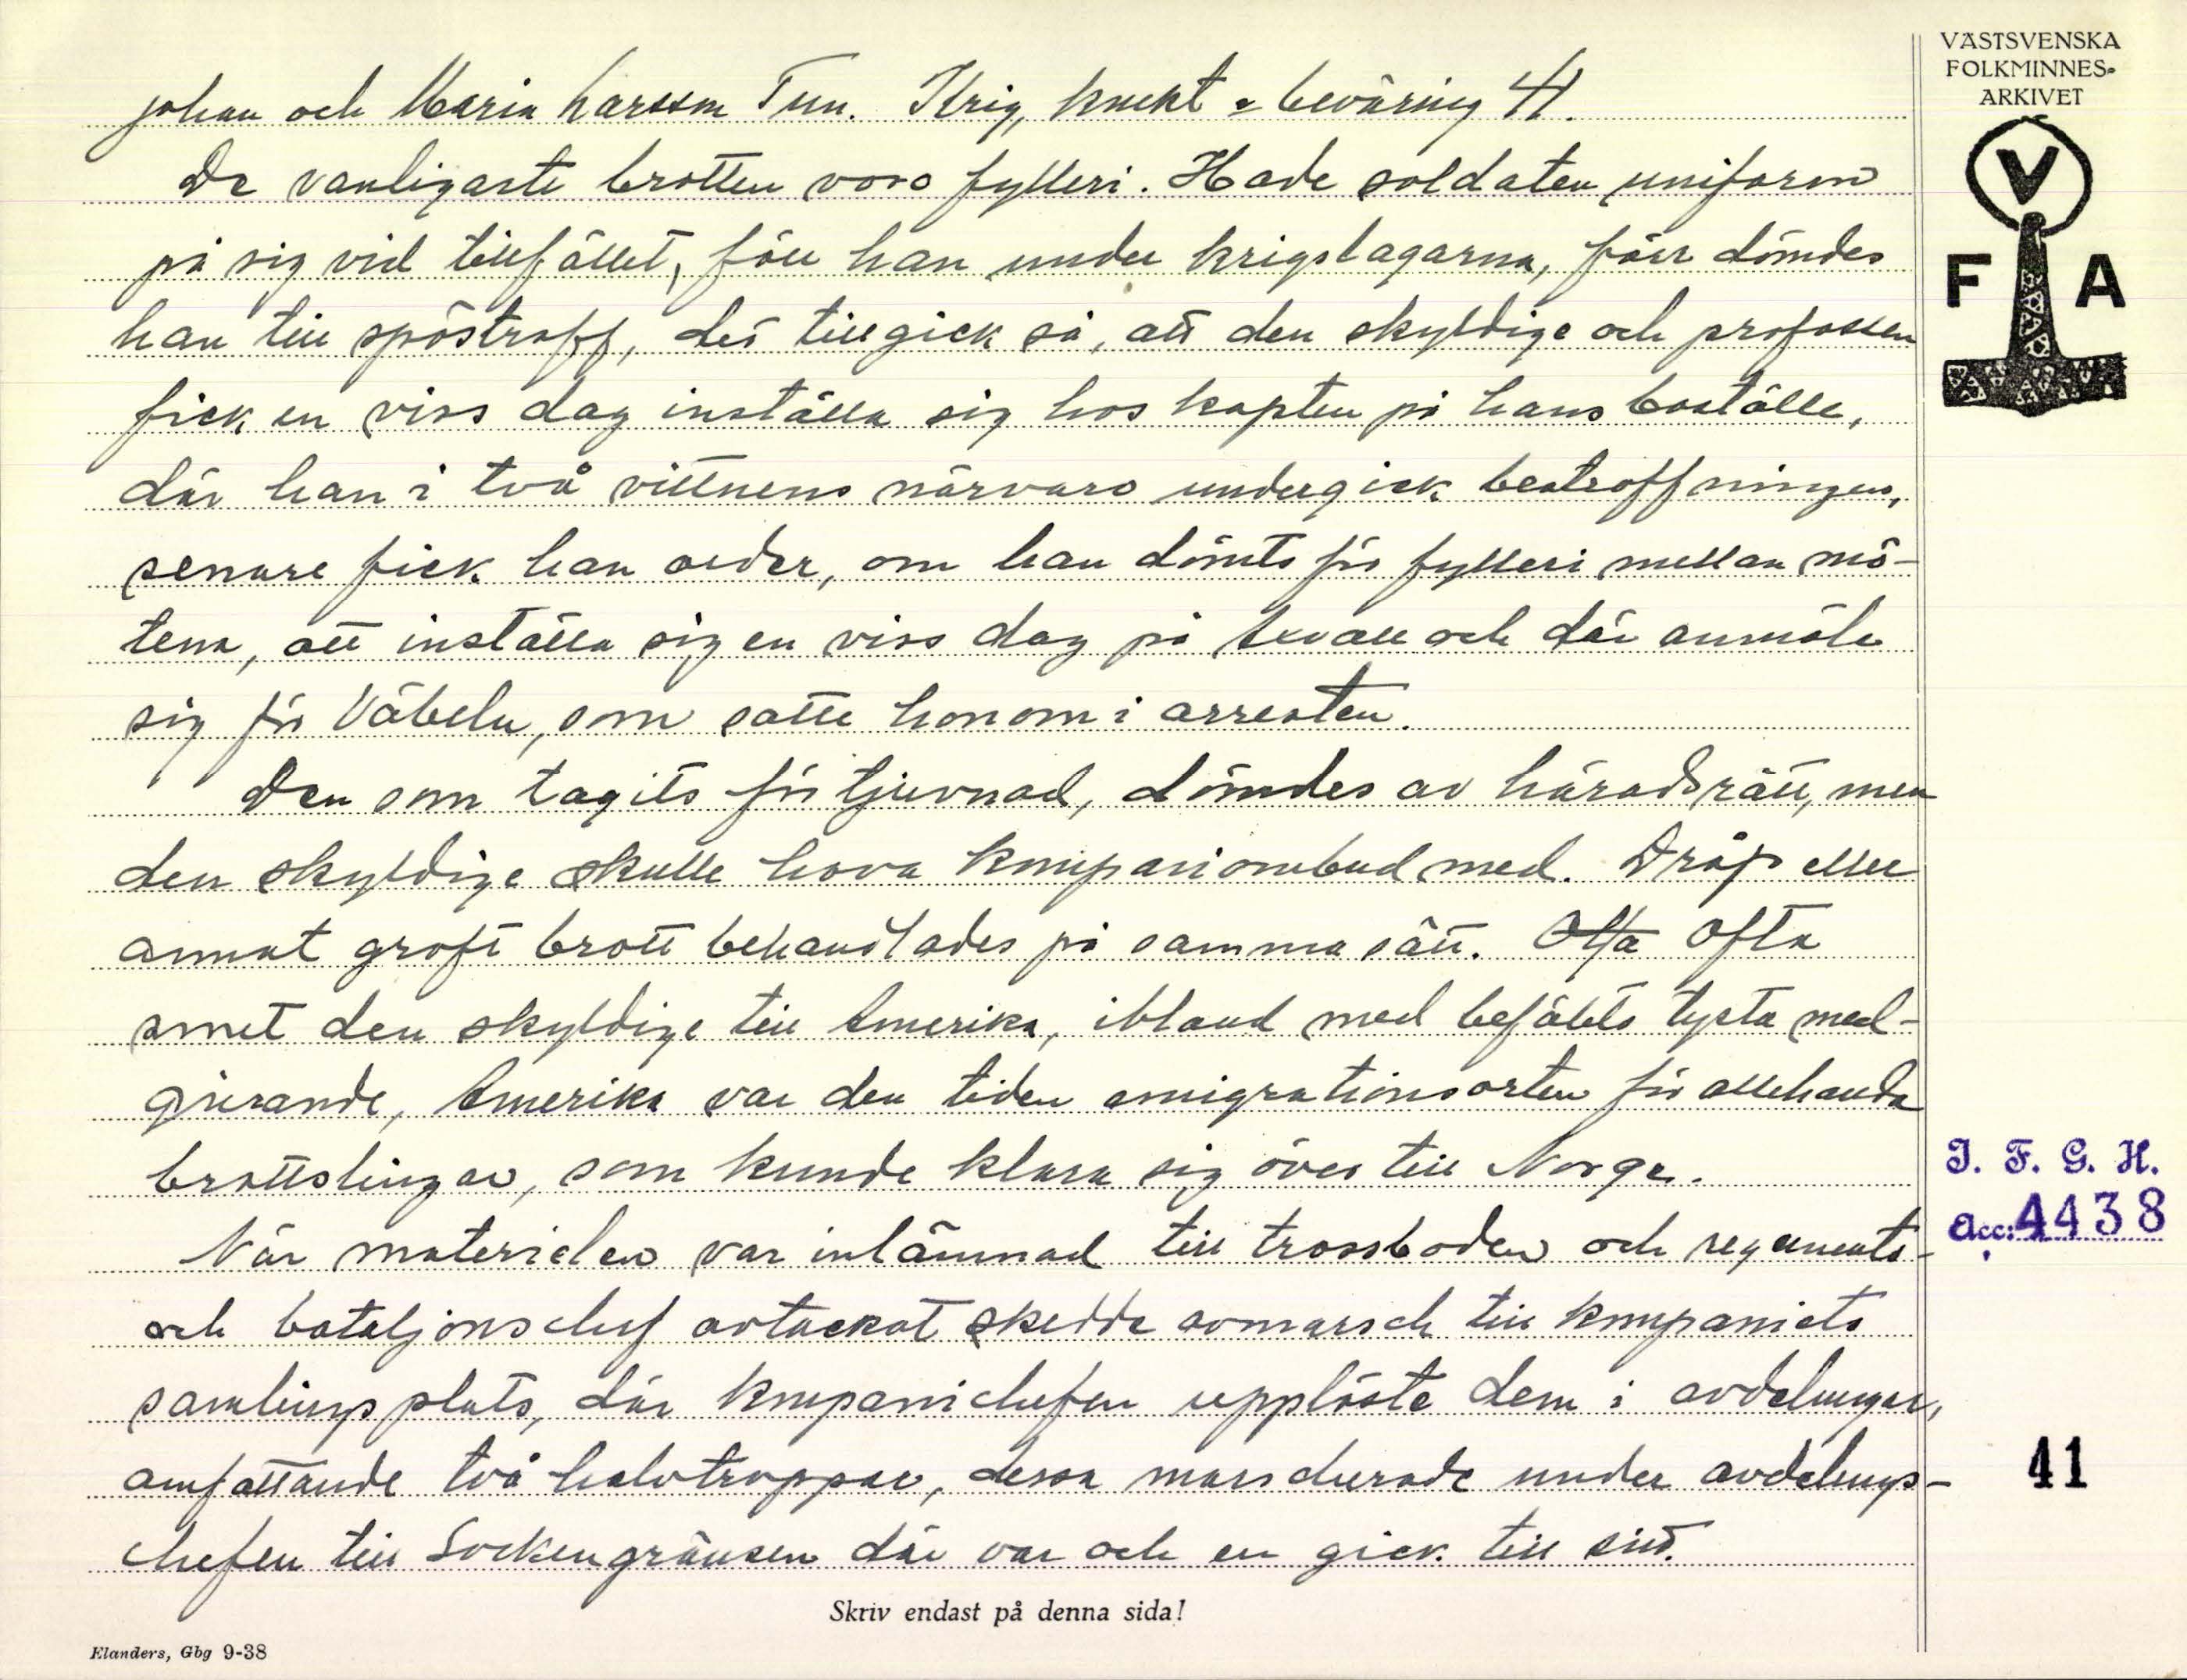 VÄSTSVENSKA
FOLKMINNES-
ARKIVET
V
F A
Johan och Maria Larsson Tun. Krig, knekt o beväring 41.
De vanligaste brotten voro fylleri. Hade soldaten uniform
på sig vid tillfället, föll han under krigslagarna, förr dömdes
han till spöstraff, det tillgick så, att den skyldige och profossen
fick en viss dag inställa sig hos kapten på hans boställe,
där han i två vittnens närvaro undergick bestraffningen,
senare fick han order, om han dömts för fylleri mellan mö-
tena, att inställa sig en viss dag på Axvall och där anmäla
sig för Väbeln, som satte honom i arresten.
Den som tagits för tjuvnad, dömdes av häradsrätt, men
den skyldige skulle hava kompaniombud med. Dråp eller
annat groft brott behandlades på samma sätt. Ofta Ofta
smet den skyldige till Amerika, ibland med befälets tysta med-
givande, Amerika var den tiden emigrationsorten för allehanda
brottslingar, som kunde klara sig över till Norge.
När materielen var inlämnad till trossboden och regements-
och bataljonschef avtackat skedde avmarsch till kompaniets
samlingsplats, där kompanichefen upplöste dem i avdelningar,
omfattande två halvtroppar, dessa marscherade under avdelnings-
chefen till Sockengränsen där var och en gick till sitt.
I. F. G. H.
Acc: 4438
41
Skriv endast på denna sida!
Elanders, Gbg 9-38